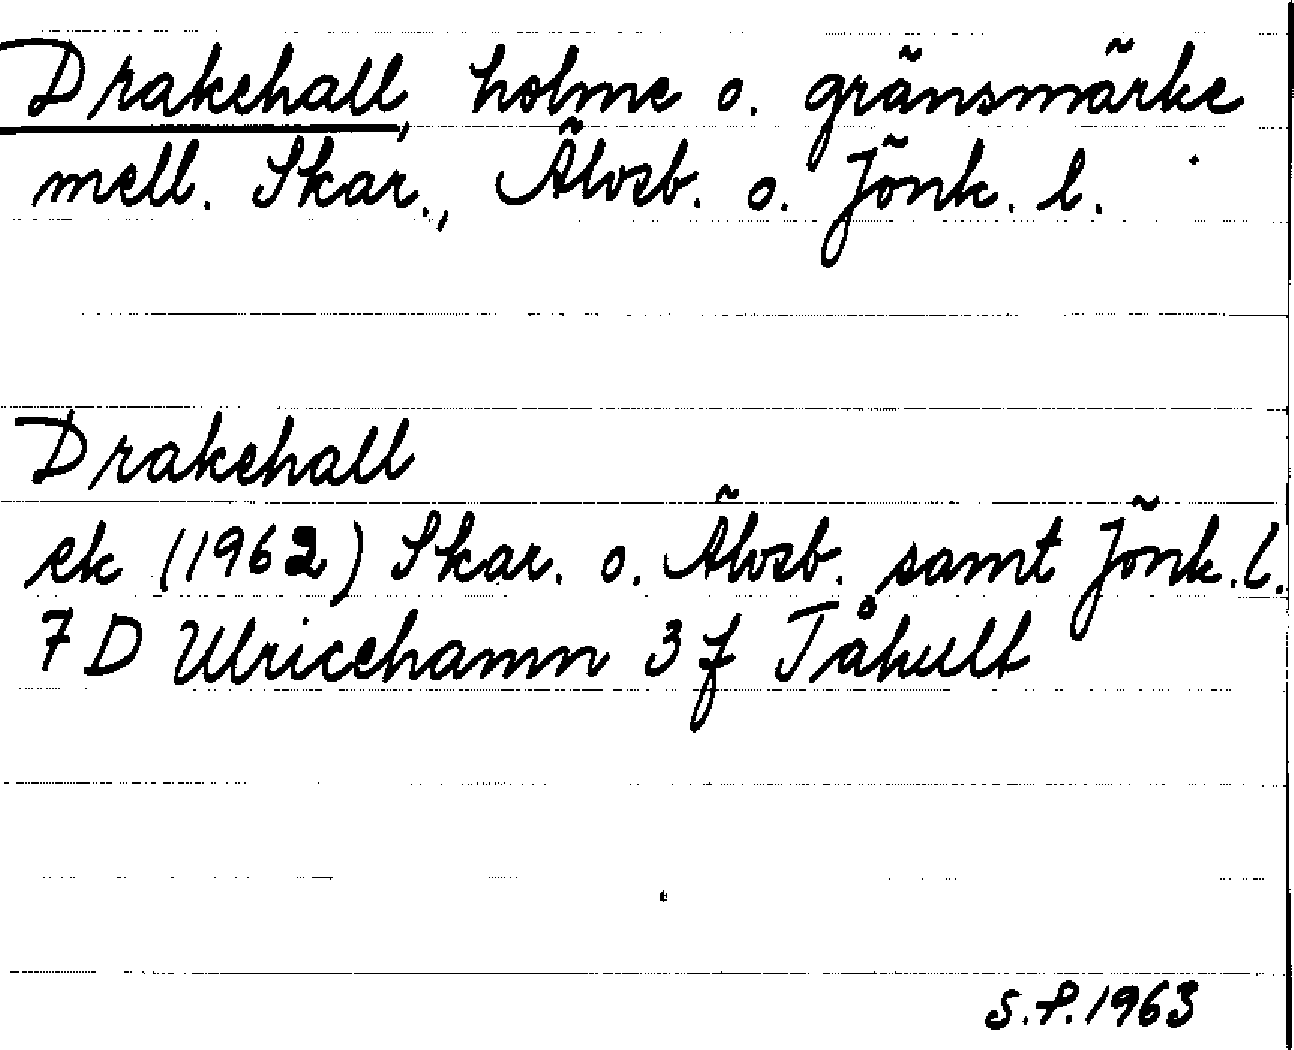 Drakehall, holme o. gränsmärke
mell. Skar., Älvsb. o. Jönk. l.
Drakehall
ek (1962) Skar. o. Älvsb. samt Jönk. l.
7 D Ulricehamn 3 f Tåhult
S.P. 1963